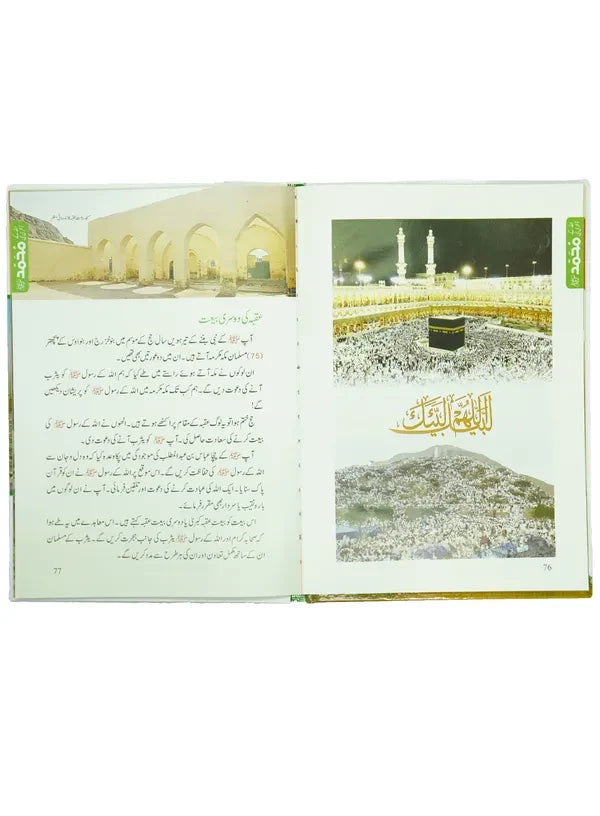 محمد ﷺ
لبیک اللھم لبیک
76
محمد ﷺ
عقبہ کی دوسری بیعت
آپ ﷺ کے نبی بننے کے تیرہویں سال حج کے موسم میں بنو خزرج اور بنو اوس کے پچھتر
(75) مسلمان مکہ مکرمہ آتے ہیں۔ ان میں دو عورتیں بھی تھیں۔
ان لوگوں نے مکہ آتے ہوئے راستے میں طے کیا کہ ہم اللہ کے رسول ﷺ کو یثرب
آنے کی دعوت دیں گے۔ ہم کب تک مکہ مکرمہ میں اللہ کے رسول ﷺ کو پریشان دیکھیں
گے!
حج ختم ہوا تو یہ لوگ عقبہ کے مقام پر اکٹھے ہوتے ہیں۔ انھوں نے اللہ کے رسول ﷺ کی
بیعت کرنے کی سعادت حاصل کی۔ آپ ﷺ کو یثرب آنے کی دعوت دی۔
آپ ﷺ کے چچا عباس بن عبدالمطلب کی موجودگی میں پکا وعدہ کیا کہ وہ دل و جان سے
اللہ کے رسول ﷺ کی حفاظت کریں گے۔ اس موقع پر اللہ کے رسول ﷺ نے ان کو قرآن
پاک سنایا۔ ایک اللہ کی عبادت کرنے کی دعوت اور تلقین فرمائی۔ آپ نے ان لوگوں میں
بارہ نقیب یا سردار بھی مقرر فرمائے۔
اس بیعت کو بیعت عقبہ کبریٰ یا دوسری بیعت عقبہ کہتے ہیں۔ اس معاہدے میں یہ طے ہوا
کہ صحابہ کرام اور اللہ کے رسول ﷺ یثرب کی جانب ہجرت کریں گے۔ یثرب کے مسلمان
ان کے ساتھ مکمل تعاون اور ان کی ہر طرح سے مدد کریں گے۔
77